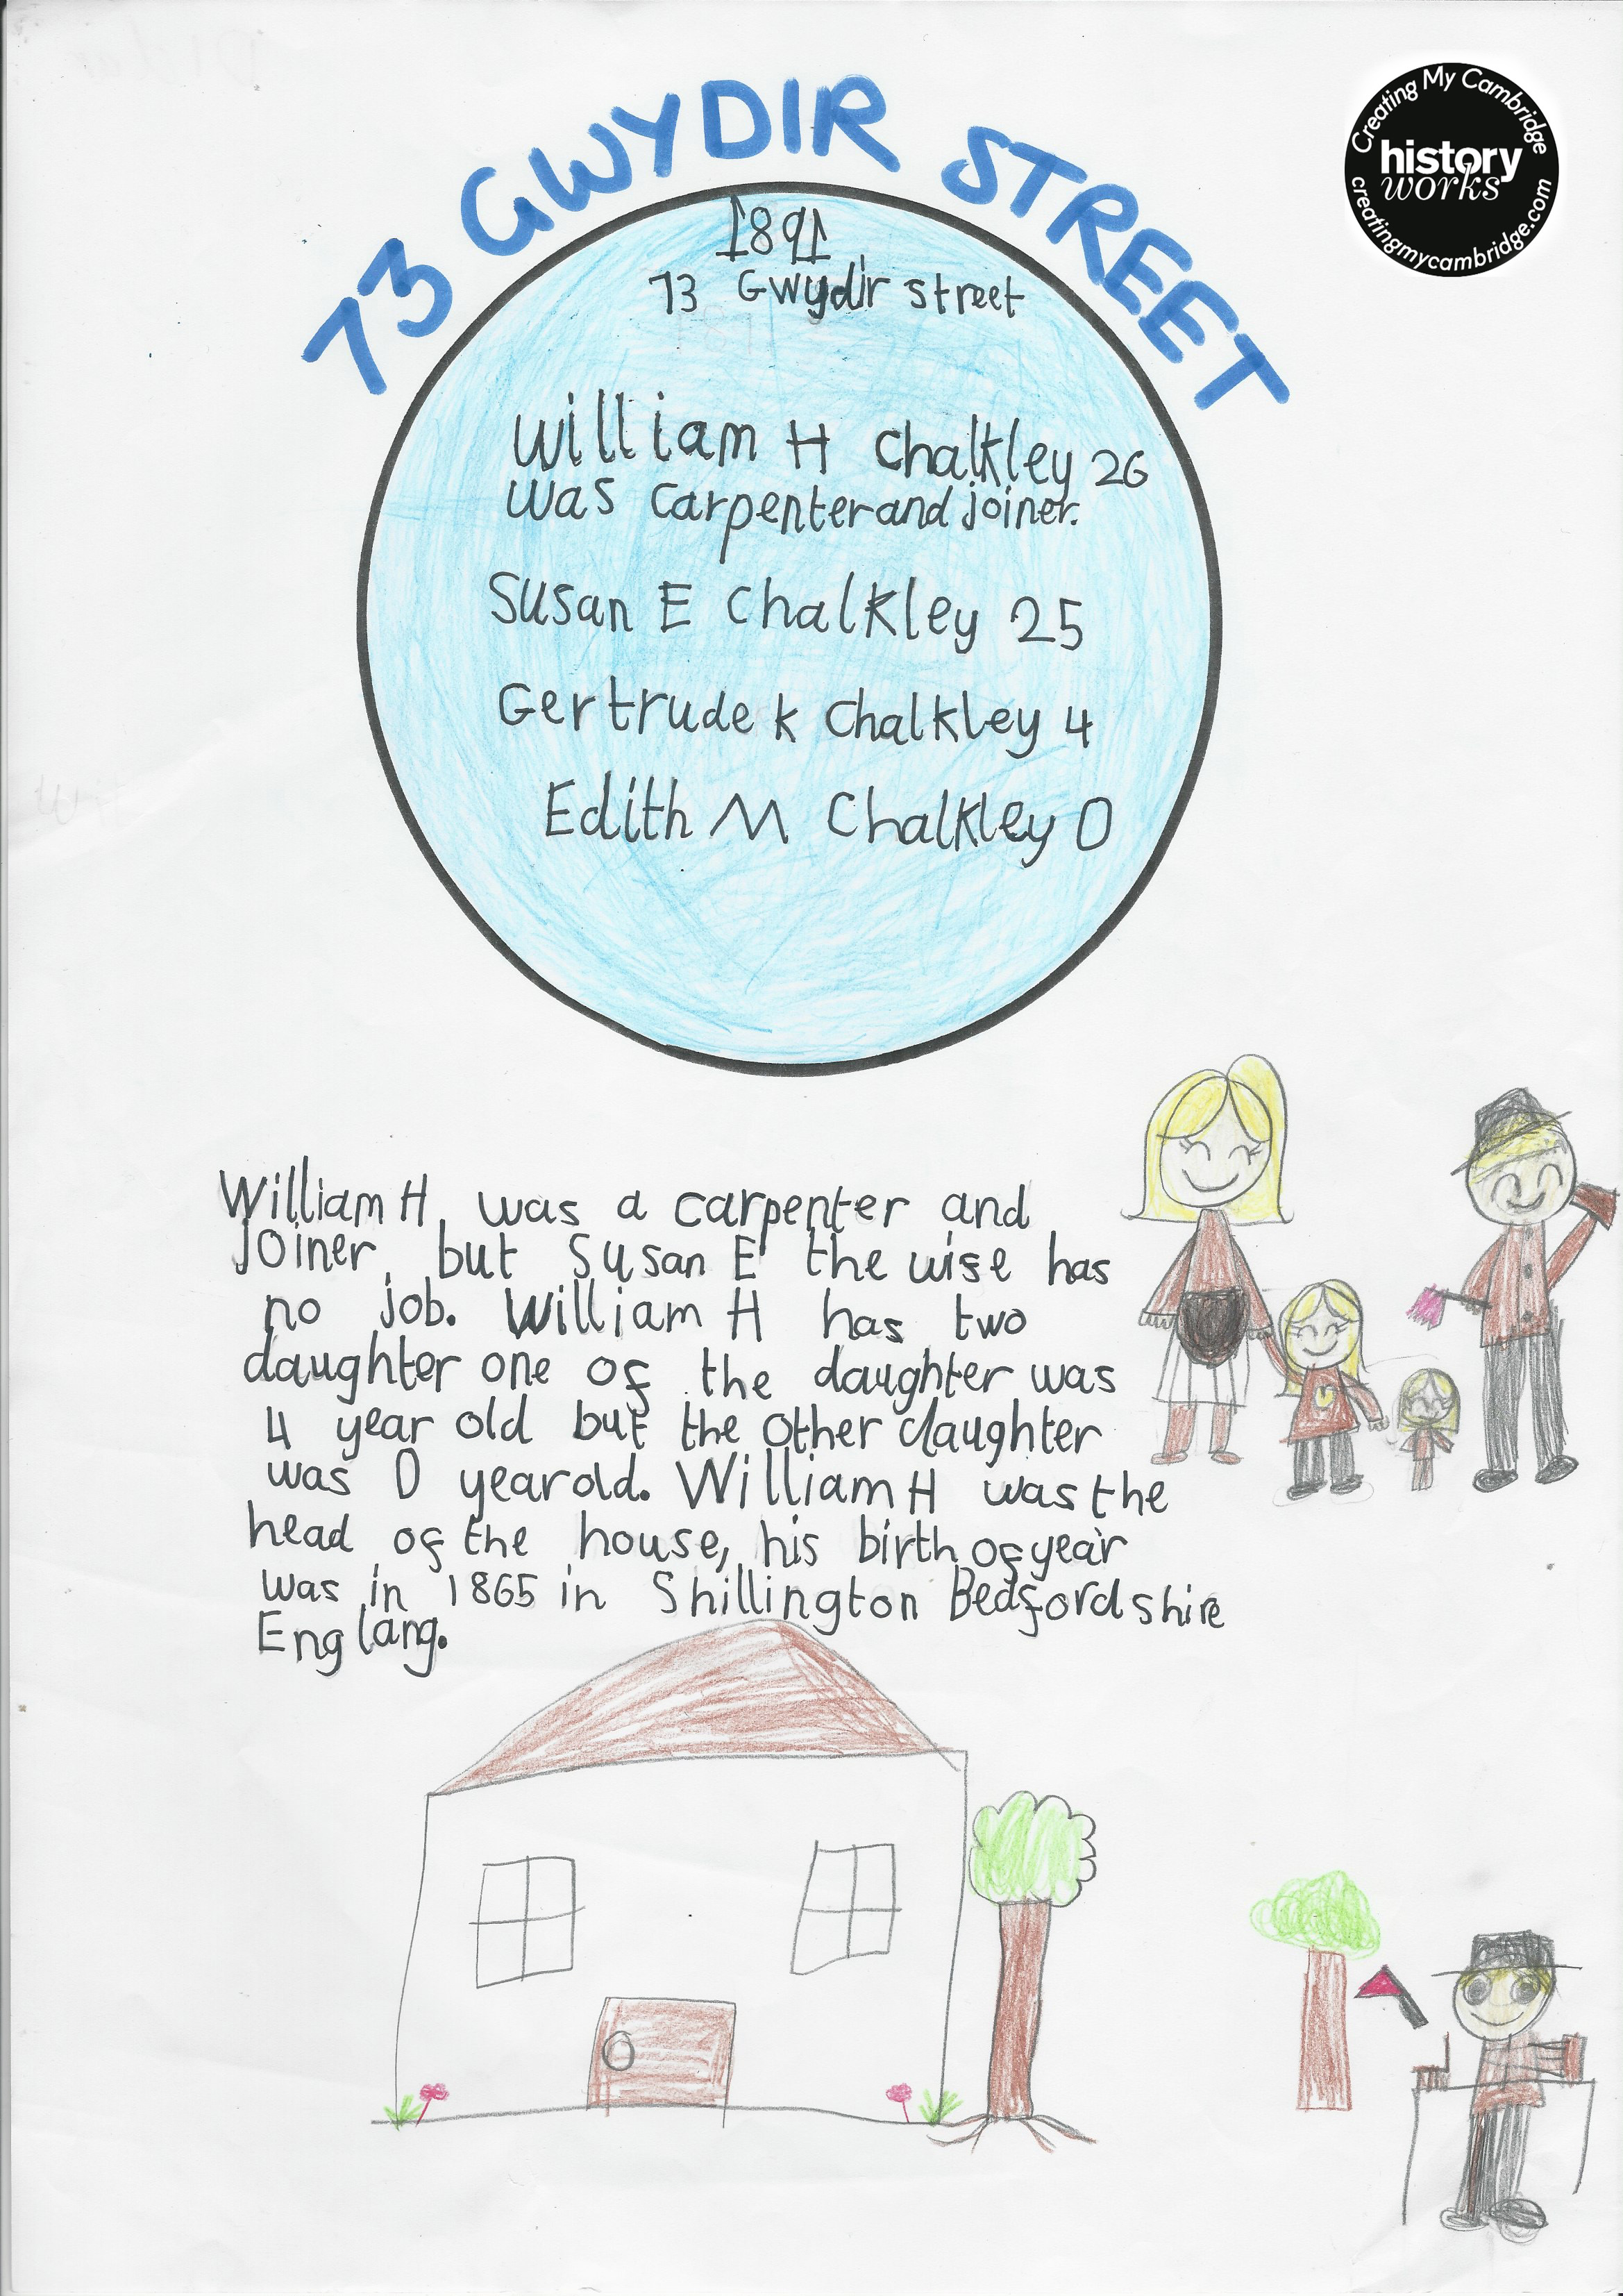 73 GWYDIR STREET
Creating My Cambridge
history
works
creatingmycambridge.com
1891
73 Gwydir street
William H Chalkley 26
was carpenter and joiner.
Susan E Chalkley 25
Gertrude k Chalkley 4
Edith M Chalkley 0
William H, was a carpenter and
joiner, but Susan E the wife has
no job. William H has two
daughter one of the daughter was
4 year old but the other daughter
was 0 year old. William H was the
head of the house, his birth of year
was in 1865 in Shillington Bedfordshire
Englang.